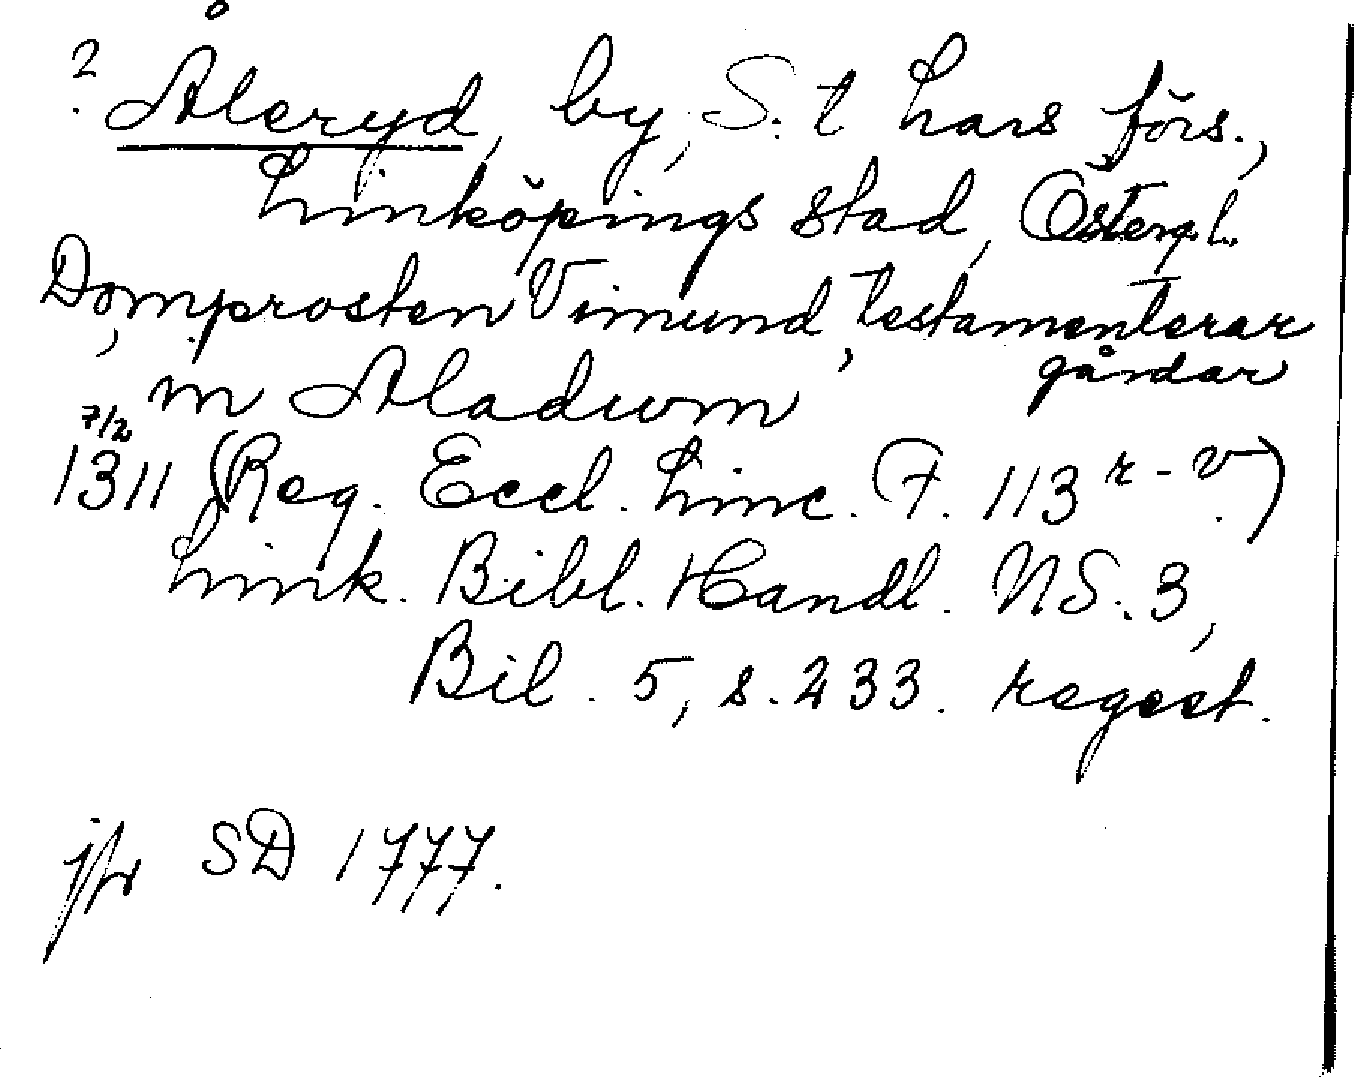 ? Åleryd, by, S:t Lars förs.,
Linköpings stad, Östergl.
Domprosten Vimund, testamenterar
gårdar
in Aladum
7/2
1311 (Reg. Eccl. Linc. F. 113 r-v.)
Link. Bibl. Handl. NS. 3,
Bil. 5, s. 233. regest.
jfr SD 1777.